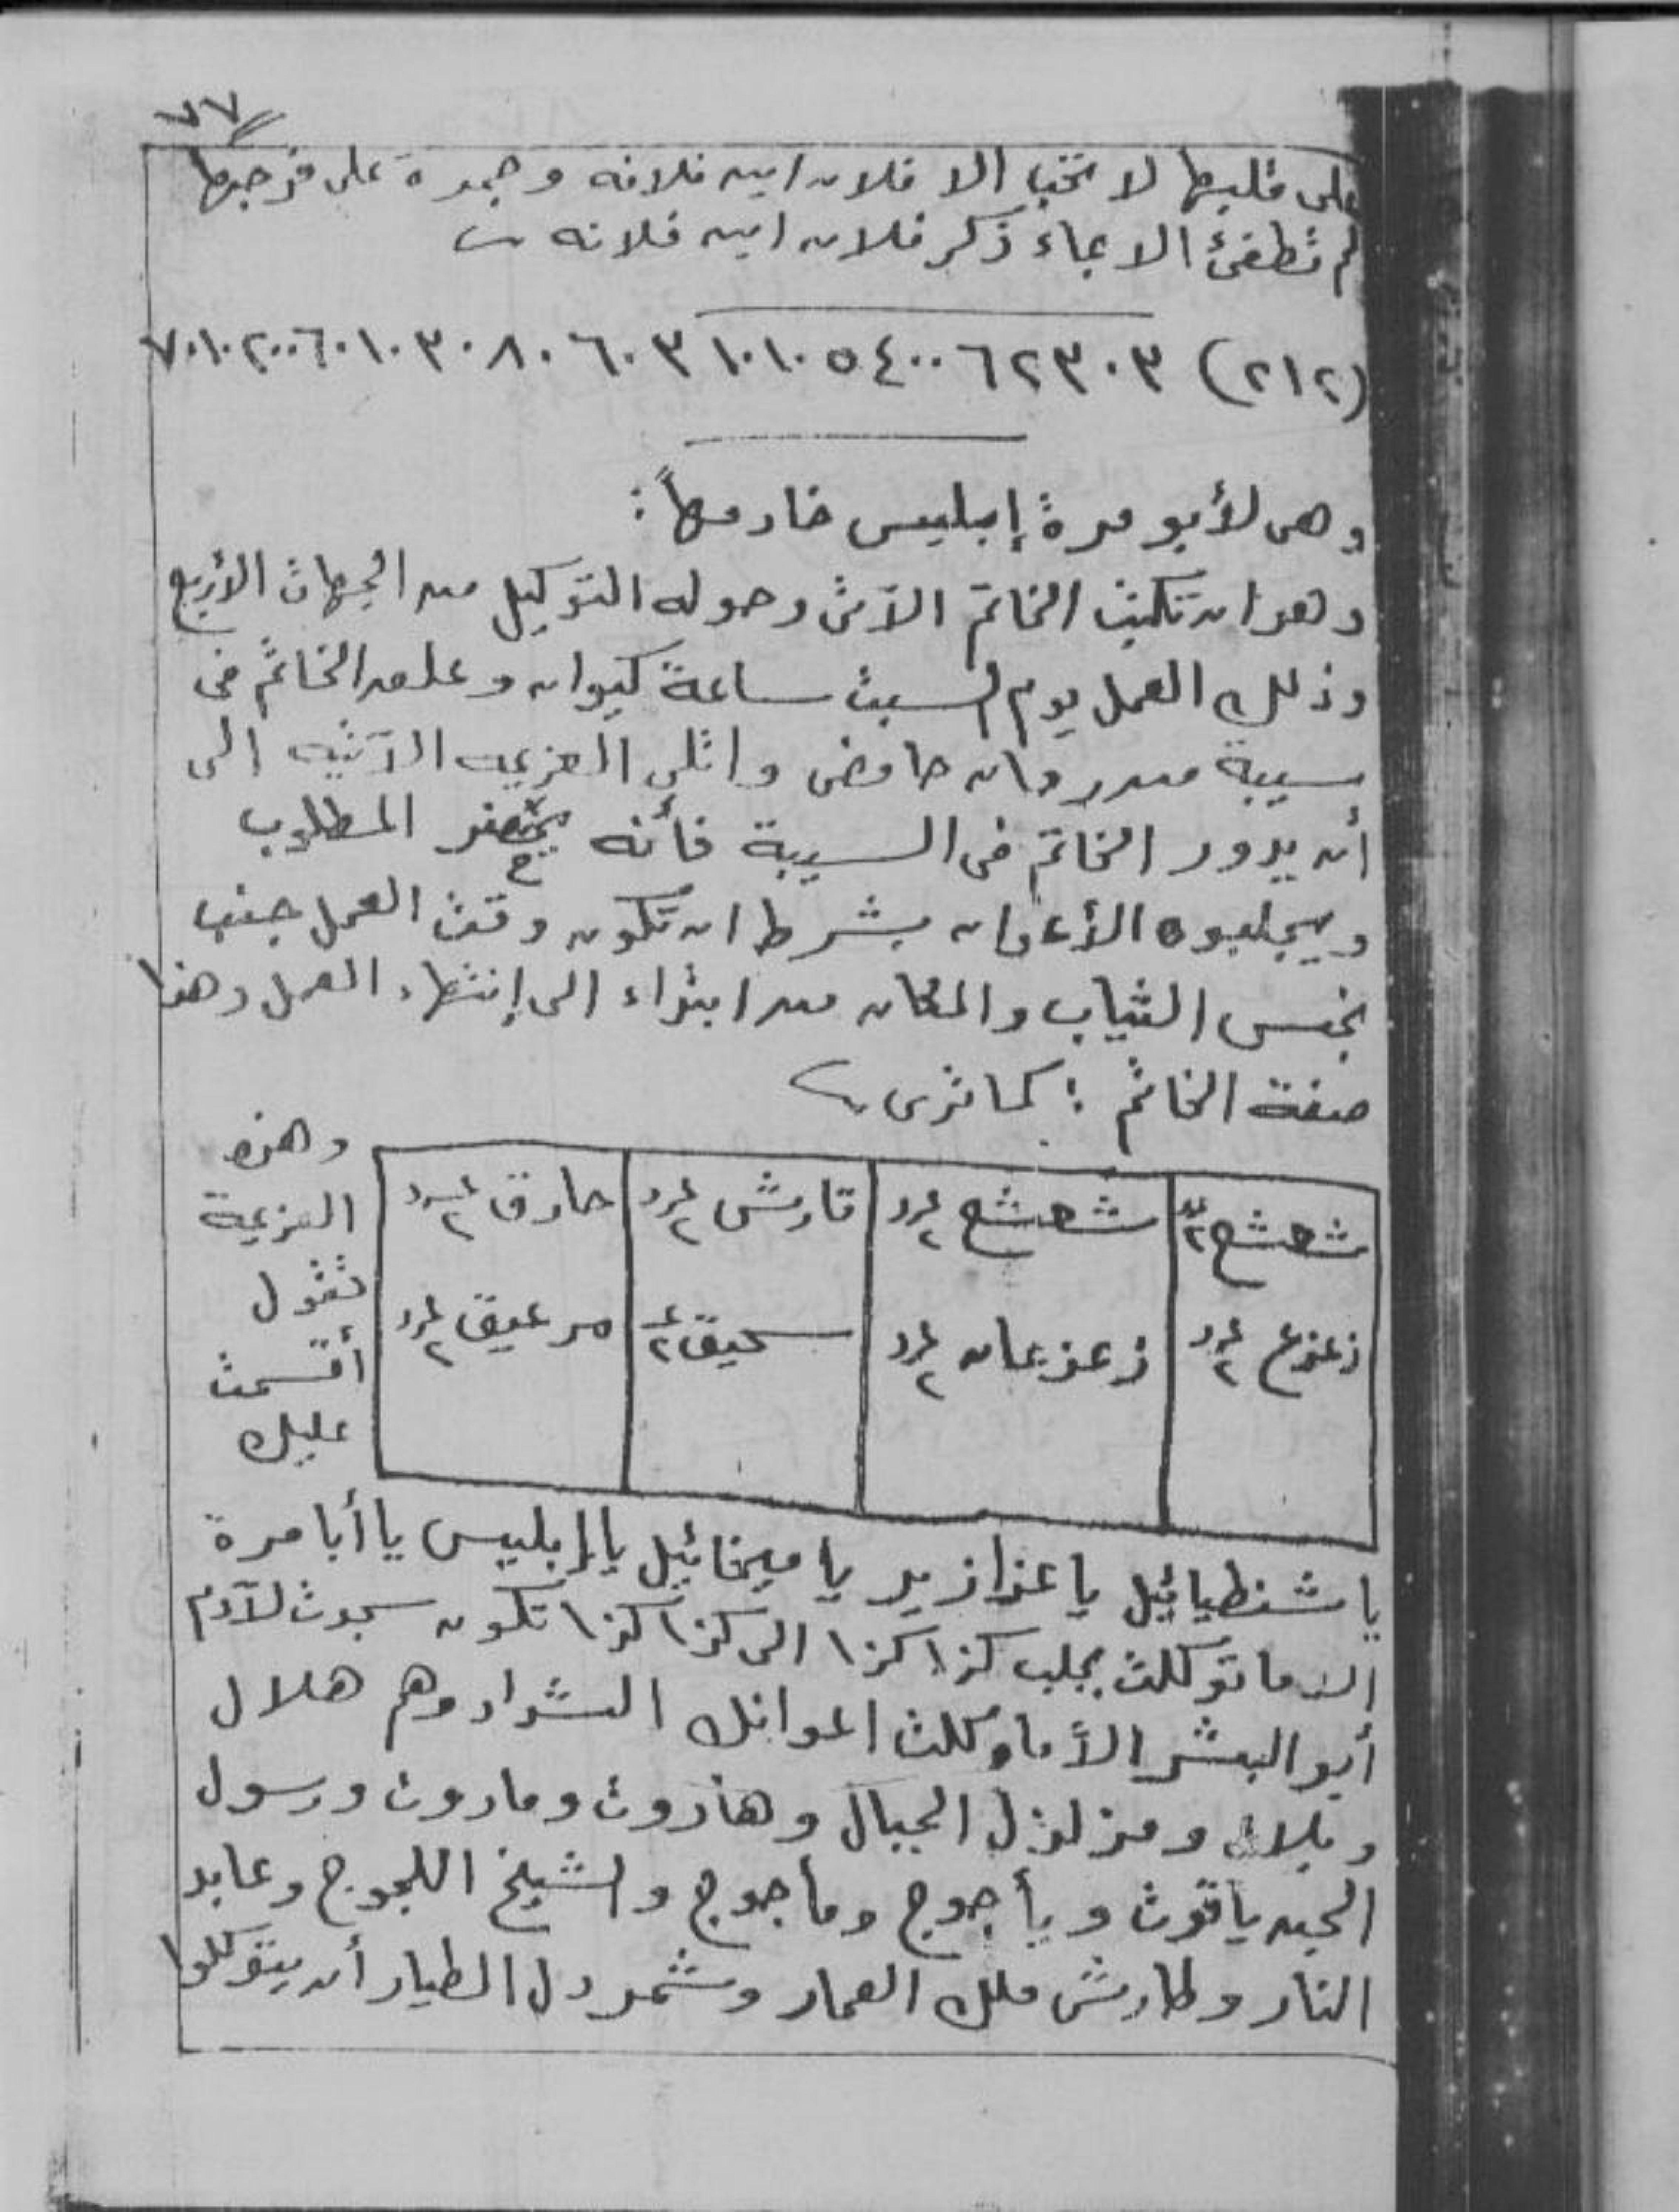 ٧٧
على قلبها لا تحب الا فلان ابن فلانه وجمرة على فرجها
لم تطفئ الا بماء ذكر فلان ابن فلانه
(٢١٢) ٣٠٣ ٢ ٦ ٤٠٠ ٥ ١٠١٠ ٣ ٦٠ ٨٠ ٣٠ ١٠ ٦٠ ٢٠٠ ١٠ ٧٠
وهى لأبو مرة إبليس خادمهاً :
وهو ان تكتب الخاتم الآتى وحوله التوكيل من الجهات الأربع
وذلك العمل يوم السبت ساعة كيوان وعلق الخاتم فى
سيبة من رمان حامض واتلى العزيمه الآتيه الى
أن يدور الخاتم فى السيبة فأنه يحضر المطلوب
ويجلبوه الأعوان بشرط ان تكون وقت العمل جنب
نجس الثياب والمكان من ابتداء الى إنتهاء العمل وهذا
صفة الخاتم : كما ترى
شهشع ٢ شهشع عدد ٢ قارش عدد ٢ حارق عدد ٢
زعزع عدد ٢ زعزعان عدد ٢ سحيق ٢ مرعيق عدد ٢
وهذه
العزيمة
تقول
أقسمت
عليك
يا شنطيائيل يا عزازيل يا ميخائيل يا إبليس يا أبا مرة
الا ما توكلت بجلب كذا كذا الى كذا كذا تكون سجدت لآدم
أبو البشر الاَّ ما وكلت اعوانك الشداد وهم هلال
وبلال ومزلزل الجبال وهاروت وماروت ورسول
الجن ياقوت ويأجوج ومأجوج والشيخ اللجوج وعابد
النار وطارش ملك العمار وشمردل الطيار أن يتوكلوا